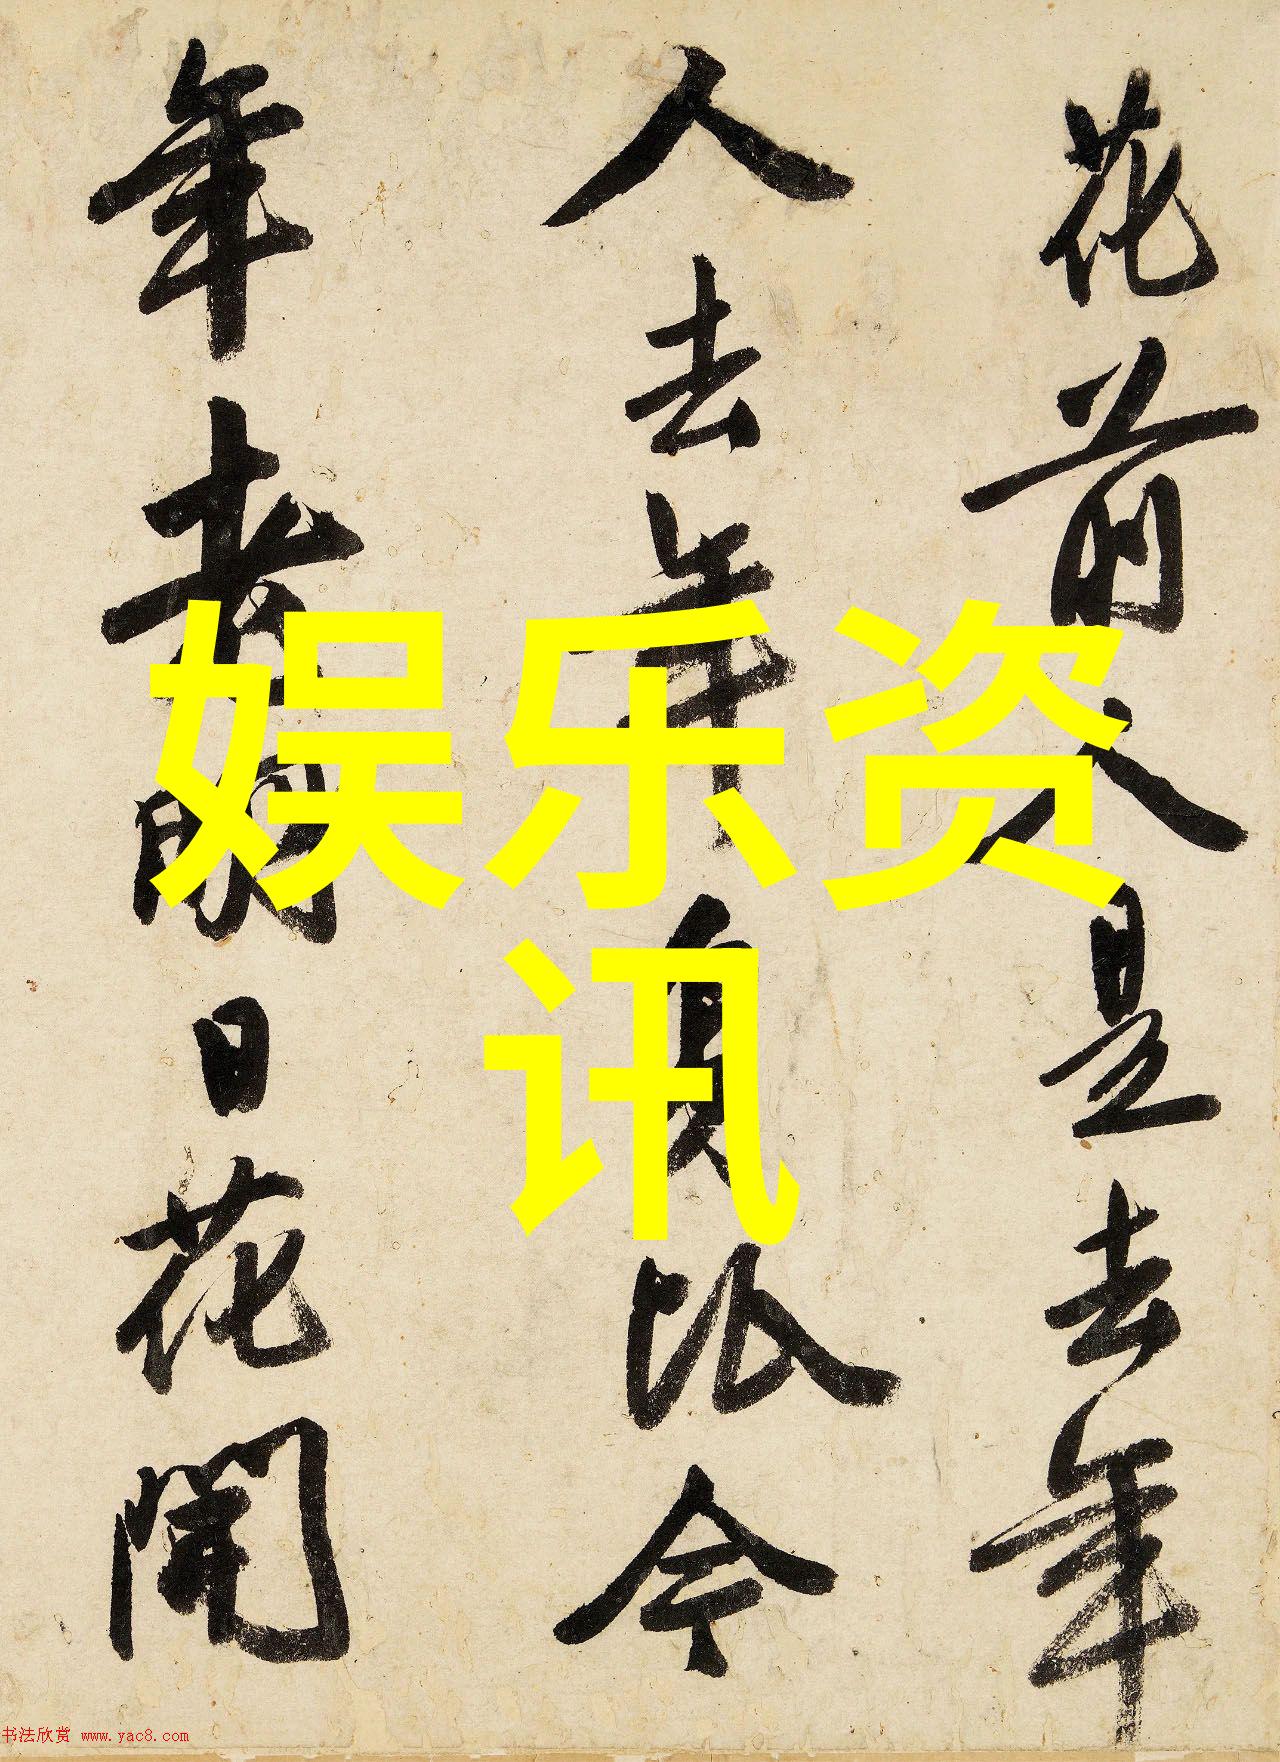 花前人是去年
人去年身比今
年老明日花開
娱乐资
讯
书法欣赏 www.yac8.com